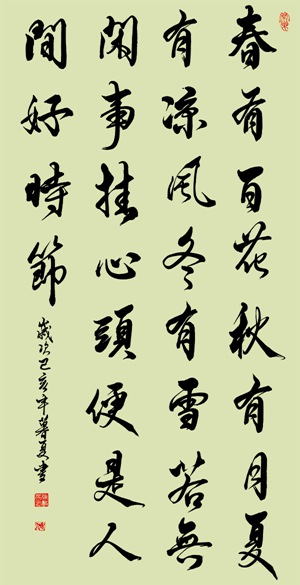 春有百花秋有月夏
有凉風冬有雪若無
閑事挂心頭便是人
間好時節
歲次己亥年暮夏書